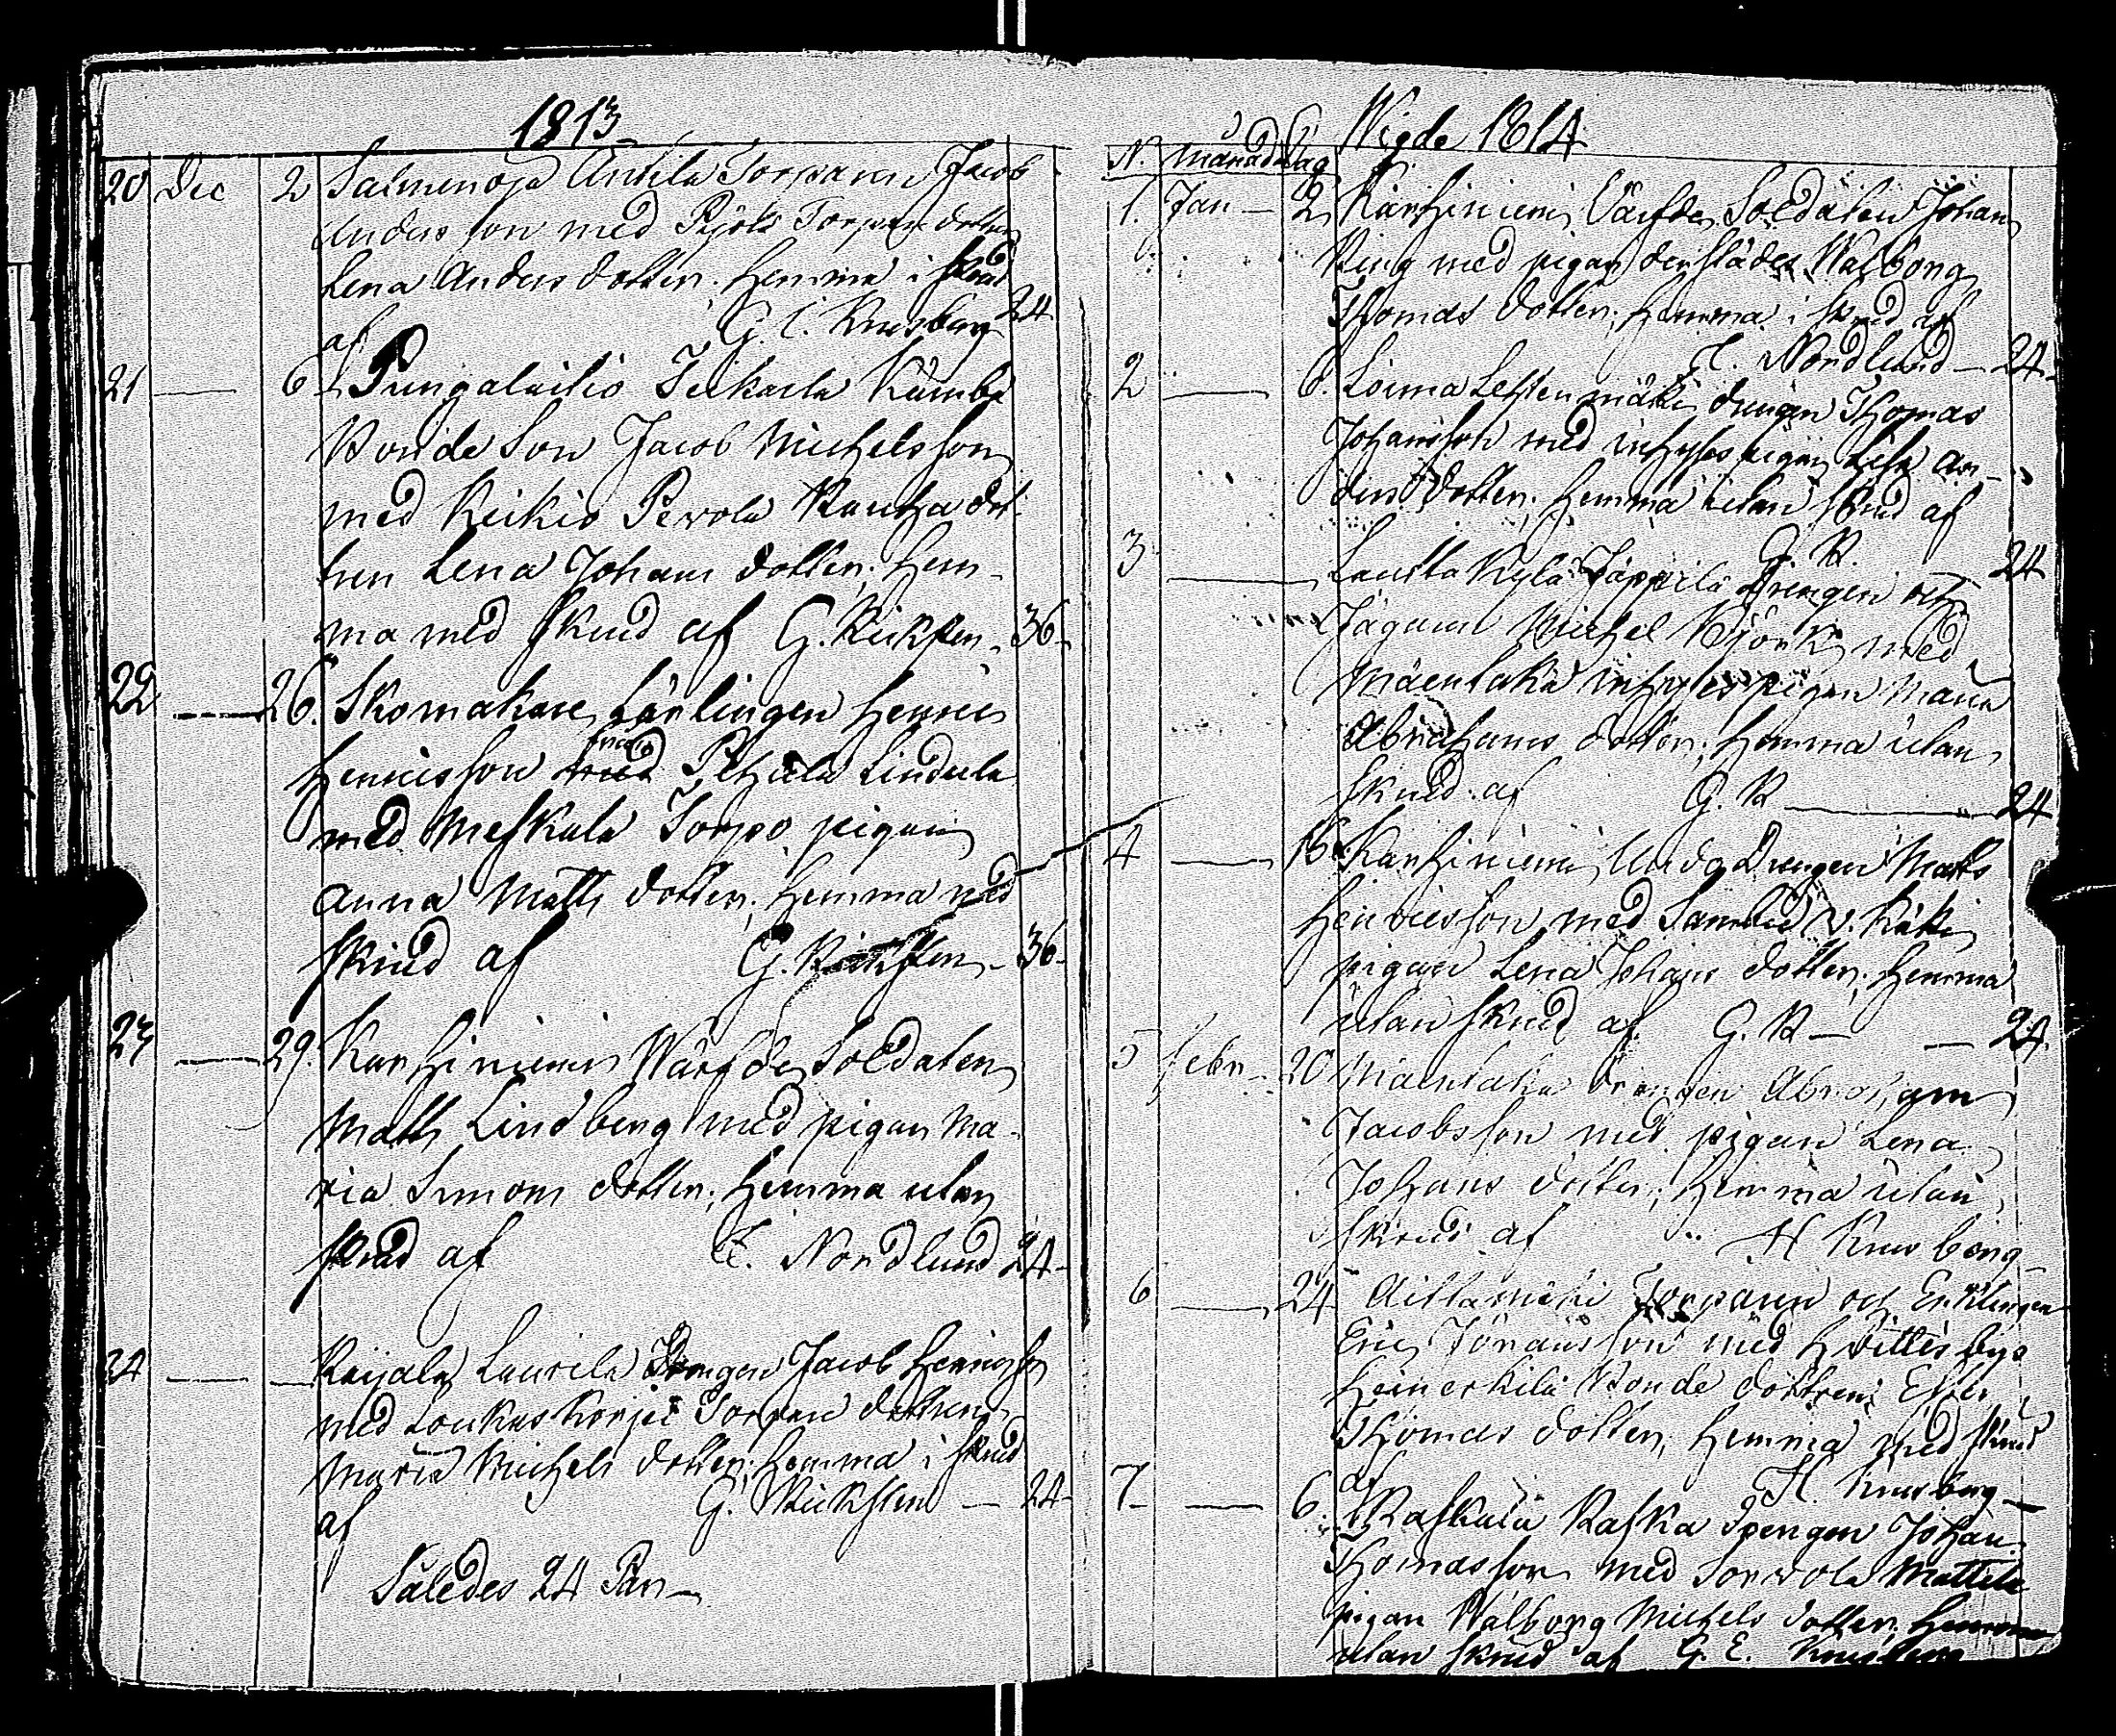 1813
20 Dec 2 Salmenoja Anttila Torparen Jacob
Anders son med Torpare dottren
Lena Anders dotter. hemma i skrud
af G. E. Krusberg 24
21 — 6 Pungalaitio Jeikarla
Bonde Son Jacob Michelsson
med Keikiö Perola Bonda dot-
tren Lena Johans dotter; hem-
ma med skrud af G. Rickstén 36
22 — 26. Skomakare Lärlingen Henric
Henricsson från Pihula Lindula
med Meskala Torpo pigan
Anna Matts dotter; hemma med
skrud af G. Rickstén 36
23 — 29. Karhiniemi Värfde Soldaten
Matts Lindberg med pigan Ma-
ria Simons dotter; hemma utan
skrud af E. Nordlund 24
24 — — Raijala Laurila Drengen Jacob Henricsson
med Loukas Korpi Torpare dottren
Maria Michels dotter; hemma i skrud
af G. Rickstén — 24
Således 24 Par—
Wigde 1814
N. Månad Dag
1. Jan — 2 Karhiniemi Värfde Soldaten Johan
Ring med pigan derstädes Walborg
Thomas dotter; hemma i skrud af
E. Nordlund — 24
2 — 6. Loima drängen Thomas
Johansson med inhyses pigan Lisa An-
ders dotter; hemma utan skrud af
G. R 24
3 — Lautta Kylä Jäppilä Drengen och
Jägaren Michel Björk med
Mäentaka inhyses pigan Maria
Abrahams dotter; hemma utan
skrud af G. R — 24
4 — 16. Karhiniemi Uuda Drengen Matts
Henricsson med
pigan Lena Johans dotter; hemma
utan skrud af G. R — — 24
5 Febr — 20 Mäentaka drengen Abraham
Jacobsson med pigan Lena
Johans dotter; hemma utan
skrud af H Krusberg
6 — 24 Torparen och Enklingen
Eric Jöransson med Hvittis bys
Heinerkilä Bonde dottren Ester
Thomas dotter; hemma med skrud
af H. Krusberg —
7 — 6. Raskala Raska drengen Johan
Thomasson med Sorvola Mattila
pigan Walborg Michels dotter; hemma
utan skrud af G. E. Krusberg